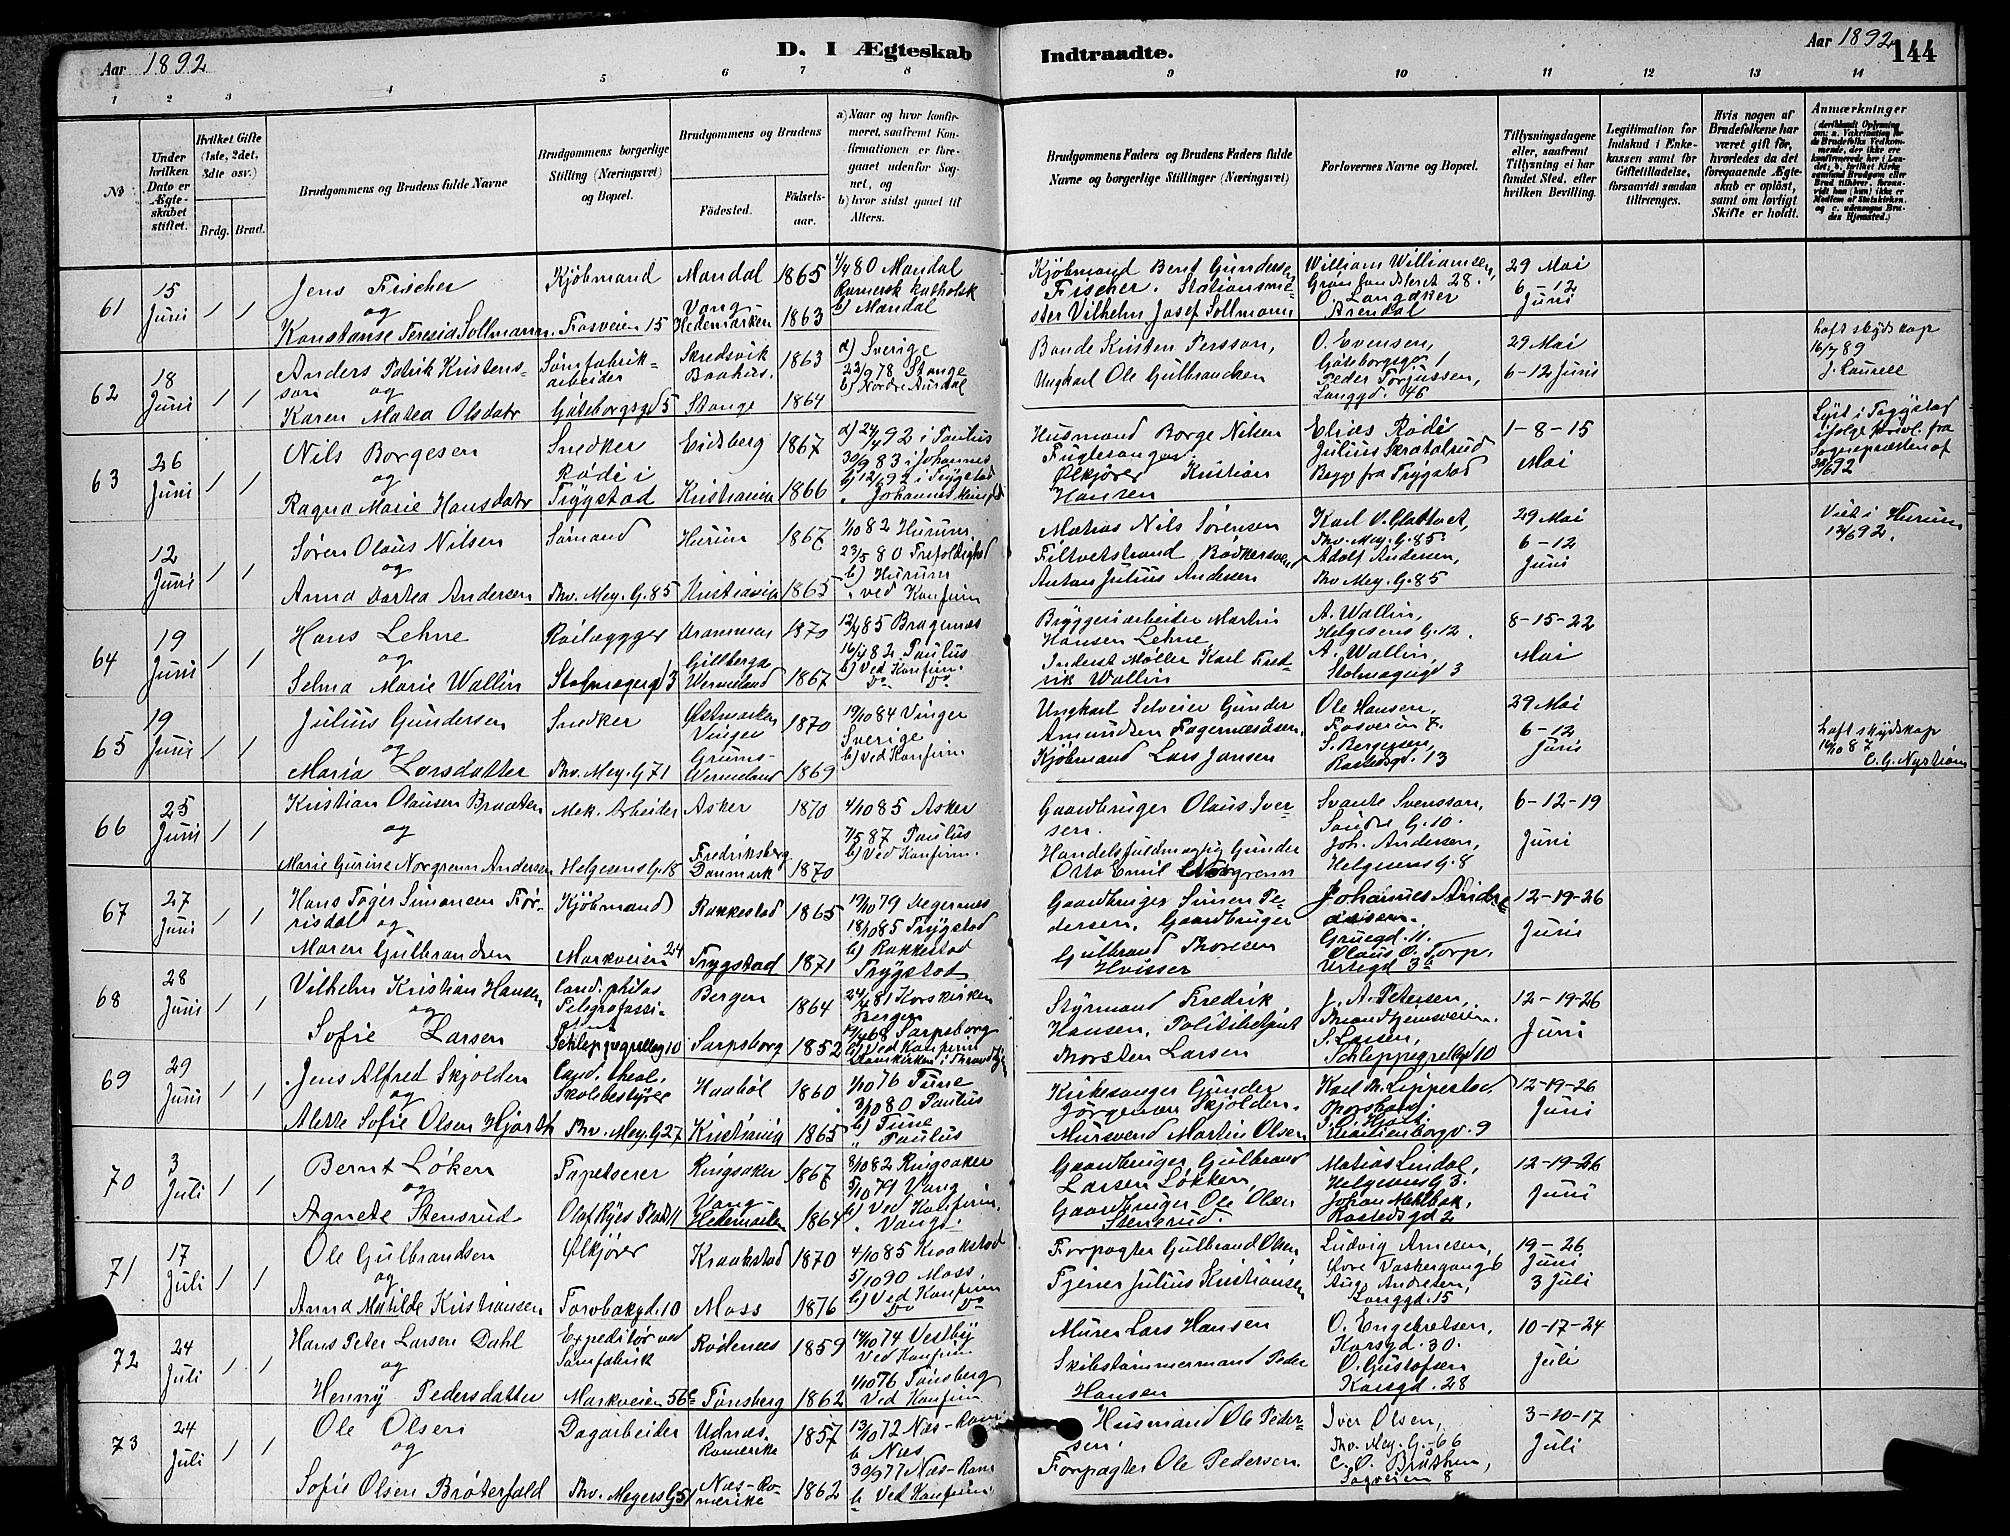 Aar 1892
D. I Ægteskab
Indtraadte.
Aar 1892
144
1 2 3 4 5 6 7 8 9 10 11 12 13 14
No
Under hvilken Dato er Ægteskabet stiftet.
Hvilket Gifte (1ste, 2det, 3die osv.)
Brdg. Brud.
Brudgommens og Brudens fulde Navne
Brudgommens borgerlige Stilling (Næringsvei) og Bopæl.
Brudgommens og Brudens
Fødested.
Fødselsaar.
a) Naar og hvor konfirmeret, saafremt Konfirmationen er foregaaet udenfor Sognet, og
b) hvor sidst gaaet til Alters.
Brudgommens Faders og Brudens Faders fulde Navne og borgerlige Stillinger (Næringsvei)
Forlovernes Navne og Bopæl.
Tillysningsdagene eller, saafremt Tillysning ei har fundet Sted, efter hvilken Bevilling.
Legitimation for Indskud i Enkekassen samt for Giftetilladelse, forsaavidt saadan tiltrænges.
Hvis nogen af Brudefolkene har været gift før, hvorledes da det foregaaende Ægteskab er opløst, samt om lovligt Skifte er holdt.
Anmærkninger
61 15 Juni 1 1
Jens Fischer
og
Konstanse Teresia Sollmann
Kjøbmand
Fosveien 15
Mandal 1865
Vang Hedemarken 1863
1/4 80 Mandal
Romersk katholsk
b) Mandal
Kjøbmand Bent Gundersen
Fischer. Stationsme-
ster Vilhelm Josef Sollmann
William Williamsen,
Grønland Leret 28.
O. Langåker
Arendal
29 Mai
6-12
Juni
62 18 Juni 1 1
Anders Patrik Kristens-
son og
Karen Matea Olsdatr
Sømfabrik-
arbeider
Göteborgsgd 5
Skredsvik
Baahus. 1863
Stange 1864
a) Sverige
22/9 78 Stange
b) Nordre Aurdal
Bonde Kristen Persson,
Ungkarl Ole Gulbrandsen
O. Evensen,
Göteborgsgd. 1
Peder Torjussen,
Langgd. 46
29 Mai
6-12 Juni
haft skydskop
16/7 89
J. Laurell
63 26 Juni 1 1
Nils Borgesen
og
Ragna Marie Hansdatr
Snedker
Rødi i
Trygstad
Eidsberg 1867
Kristiania 1866
a) 24/4 92 i Paulus
30/9 83 i Johannes
b) 12/6 92 i Trygstad
" Johannes
Husmand Borge Nilsen
Fuglesangen
Ølkjører Kristian
Hansen
Elias Rødi
Julius Skratolrud
Begge fra Trygstad
1-8-15
Mai
Lyst i Trygstad
ifølge
Sognepresten af
12 Juni 1 1
Søren Olaus Nilsen
og
Anna Dortea Andersen
Sømand
Thv. Mey. G. 85
Hurum 1867
Kristiania 1865
1/10 82 Hurum.
23/5 80 Trefoldighed
b) Hurum
" ved Konfirm
Matias Nils Sørensen
Filtvetstrand Bødkersvend
Anton Julius Andersen
Karl O. Glattvet,
Thv. Mey. G. 85
Adolf Andersen,
Thv Mey. G. 85
29 Mai
6-12
Juni
Viet i Hurum
12/6 92.
64 19 Juni 1 1
Hans Lehne
og
Selma Marie Wallin
Rørlægger
Stolmagergd 3
Drammen 1870
Gillberga
Wermeland 1867
12/4 85 Bragernæs
16/4 82 Paulus
b) Ved Konfirm.
Do Do
Bryggeriarbeider Martin
Hansen Lehne
Inderst Møller Karl Fred-
rik Wallin
A. Wallin,
Helgesens G. 12.
A. Wallin,
Stolmagergd 3
8-15-22
Mai
65 19 Juni 1 1
Julius Gundersen
og
Maria Larsdatter
Snedker
Thv. Mey. G 71
Østmarken
Vinger 1870
Grums-
Wermeland 1869
19/10 84 Vinger
Sverige
b) Ved Konfirm
Ungkarl Selveier Gunder
Amundsen Fagernæsåsen.
Kjøbmand Lars Jansen
Ole Hansen,
Fosveien 7.
S. Bergersen,
Rathkesgd. 13
29 Mai
6-12
Juni
haft skydskop
14/10 87
C. G. Nyström
66 25 Juni 1 1
Kristian Olausen Braaten
og
Marie Gurine Norgrenn Andersen
Mek. Arbeider
Helgesens G. 18
Asker 1870
Fredriksberg
Danmark 1870
4/10 85 Asker
7/5 87 Paulus
b) Ved Konfirm.
Gaardbruger Olaus Iver-
sen.
Handelsfuldmægtig Gunder
Otto Emil Norgrenn
Svante Svensson,
Søndre G. 10.
Joh. Andersen,
Helgesens G. 8
6-12-19
Juni
67 27 Juni 1 1
Hans Tøger Simonsen Tør-
risdal og
Maren Gulbrandsen
Kjøbmand
Markveien 24
Rakkestad 1865
Trygstad 1871
12/10 79 Degernæs
18/10 85 Trygstad
b) Rakkestad
Trygstad
Gaardbruger Simen Pe-
dersen, Gaardbruger
Gulbrand Thoresen
Hvisser
Johannes Andre-
assen.
Gruegd. 11.
Olaus O. Torp.
Urtegd 3a
12-19-26
Juni
68 28 Juni 1 1
Vilhelm Kristian Hansen
og
Sofie Larsen
Cand. philos
Telegrafassi-
stent
Schleppegrellsgd 10
Bergen 1864
Sarpsborg 1852
24/4 81 Korskirken
Bergen
Sarpsborg
b) Ved Konfirm
Domkirken i Throndhj
Styrmand Fredrik
Hansen, Politibetjent
Thorsten Larsen
J. A. Petersen,
Throndhjemsveien.
S. Larsen,
Schleppegrellsgd 10
12-19-26
Juni
69 29 Juni 1 1
Jens Alfred Skjolden
og
Alette Sofie Olsen Hjorth
Cand. theol.
Skolebestyrer
Thv. Mey. G. 27
Haabøl 1860
Kristiania 1865
1/10 76 Tune
3/10 80 Paulus
b) Tune
" Paulus
Kirkesanger Gunder
Jørgensen Skjolden.
Mursvend Martin Olsen
Karl Th. Lippestad
Thorshaug.
J. O. Hjort
Uranienborgv. 9
12-19-26
Juni
70 3 Juli 1 1
Bernt Løken
og
Agnete Stensrud
Tapetserer
Olaf Ryes Plads 11
Ringsaker 1867
Vang-
Hedemarken 1864
8/10 82 Ringsaker
5/10 79 Vang
b) Ved Konfirm.
" Vang.
Gaardbruger Gulbrand
Larsen Løkken,
Gaardbruger Ole Olsen
Stenerud.
Matias Lindal,
Helgesens G 3.
Johan Mehlbak,
Rostedsgd 2
12-19-26
Juni
71 17 Juli 1 1
Ole Gulbrandsen
og
Anna Matilde Kristiansen
Ølkjører
Torvbakgd. 10
Kraakstad 1870
Moss 1876
4/10 85 Kraakstad
5/10 90 Moss.
b) Ved Konfirm
Do Do
Forpagter Gulbrand Olsen
Tjener Julius Kristiansen
Ludvig Arnesen,
Øvre Vaskergang 6
Aug. Andresen,
Langgd. 15
19-26
Juni
3 Juli
72 24 Juli 1 1
Hans Peter Larsen Dahl
og
Henny Pedersdatter
Expeditør ved
Sømfabrik
Markveien 56c
Rødenæs 1859
Tønsberg 1862
11/10 74 Vestby
Ved Konfirm
1/10 76 Tønsberg
Ved Konfirm
Murer Lars Hansen
Skibstømmermand Peder
Hansen
O. Engebretsen,
Korsgd. 30.
O. Gustafsen
Korsgd. 28
10-17-24
Juli
73 24 Juli 1 1
Ole Olsen
og
Sofie Olsen Bröterfald
Dagarbeider
Thv. Meyers G 51
Udnæs.
Romerike 1857
Næs-Ro-
merike 1862
13/10 72 Næs-Rom
b Næs
30/9 77 Næs-Rom
b Ved Konfirm
Husmand Ole Peder-
sen.
Forpagter Ole Pedersen.
Iver Olsen,
Thv. Mey. G. 66
C. O. Bråthen,
Sagveien 8
3-10-17
Juli